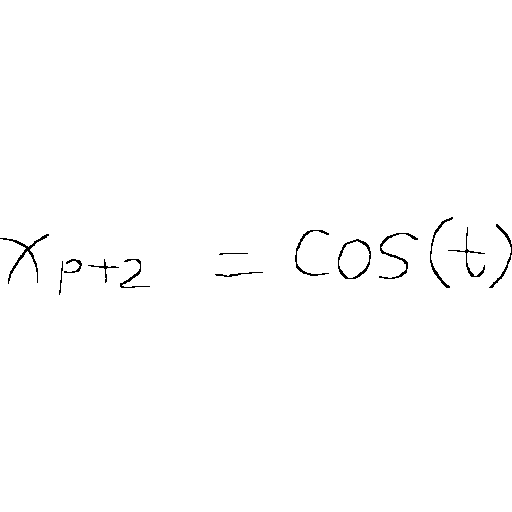 x_{p+2} = cos(t)